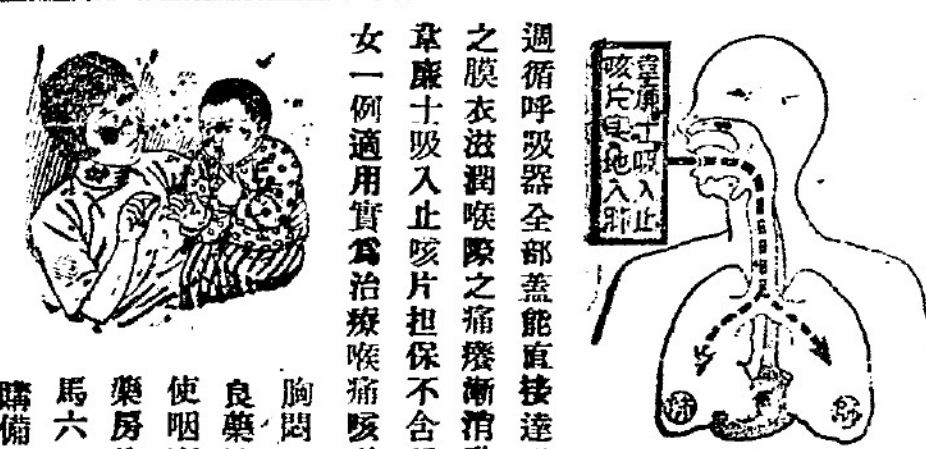 韋廉士吸入止
咳片直地入肺
肺
肺
週循呼吸器全部蓋能直接達
之膜衣滋潤喉際之痛癢漸消
韋廉士吸入止咳片担保不含
女一例適用實爲治療喉痛咳
胸悶
良藥
使咽
藥房
馬六
購備